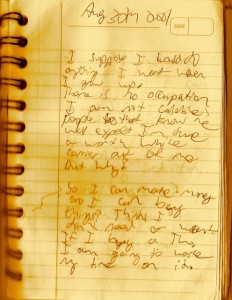 Aug 30th 2001
DATE
I suppose I could do
anything I want when
I grow up.
There is no occupation
I am not
people that know me
well expect
a worth while
career out of me
But why?
So I can make money
So I can buy
things? Things I
don't need or want
If I buy a
I am going to waste
my time on it.